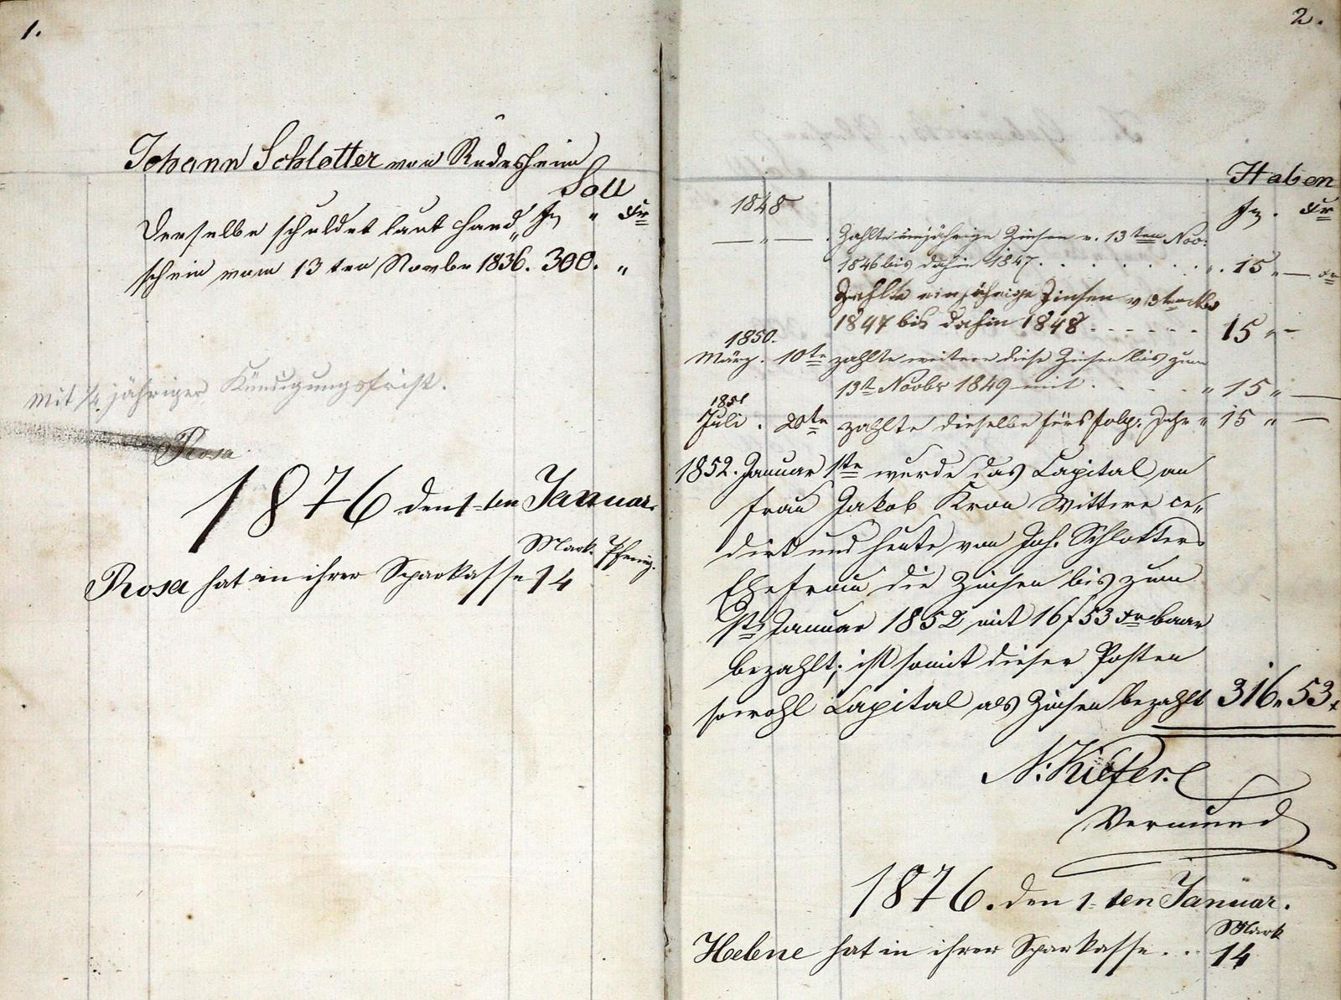 1.
Johann Schlotter von Rüdesheim
Soll
Derselbe schuldet laut Hand„ fl „ Xr
schein vom 13ten Novbr 1836. 300. „
mit ¼ jähriger Kündigungsfrist.
Rosa
1876 den 1-ten Januar.
Mark. Pfennig.
Rosa hat in ihrer Sparkasse 14
2.
Haben
1848
fl. Xr
— „ — . Zahlte einjährige Zinsen v. 13ten Nov.
1846 bis dahin 1847. . . . . . „ . 15 „ — Xr
Zahlte einjährige Zinsen v 13ten Nbr
1847 bis dahin 1848. . . . . . 15 „ —
1850.
März. 10te zahlte weitere diese Zinsen bis zum
13t Novbr 1849 mit . . . . „ 15 „ —
1851
Juli. 20te zahlte dieselbe fürs folg. Jahr „ 15 „ —
1852. Januar 1te wurde das Capital an
Frau Jakob Kron Wittwe ce„
dirt und heute von Joh. Schlotters
Ehefrau die Zinsen bis zum
1t Januar 1852 mit 16 f 53 Xr baar
bezahlt; ist somit dieser Posten
sowohl Capital als Zinsen bezahlt 316 „ 53 x
N: Kiefer.
Vormund
1876. den 1-ten Januar.
Mark
Helene hat in ihrer Sparkasse. . . 14